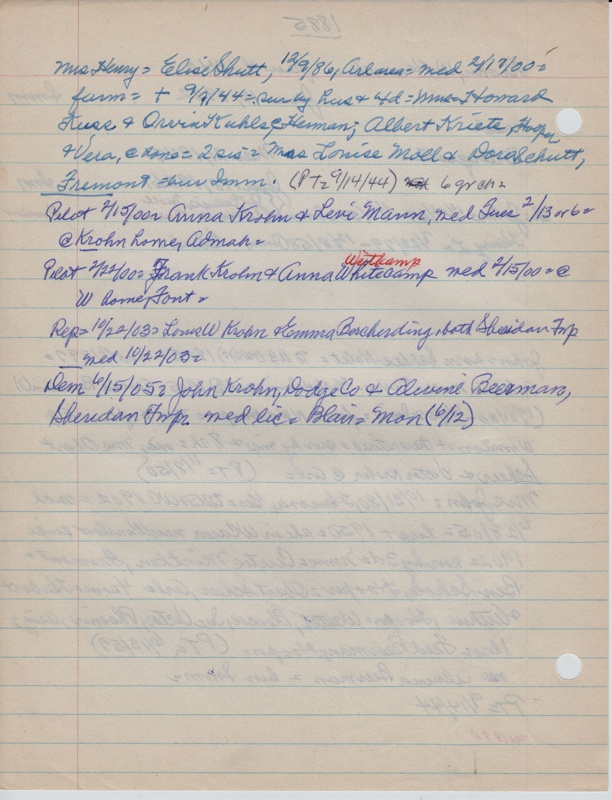 Mrs Henry = Elise Shutt, 12/9/86, Ar area = med 2/17/00 =
farm = + 9/9/44 = sur by hus & 4d = Mmes Howard
Kuss & Orvin Kuhls, Heman; Albert Kriete, Hooper
& Vera, @ home = 2 sis = Mrs Louise Moll & Dora Schutt,
Fremont = bur Imm. (PT = 9/14/44) 6 gr ch =
Pilot 2/15/00 = Anna Krohn & Levi Mann, med Tues 2/13 or 6 =
@ Krohn home, Admah =
Westkamp
Pilot 2/22/00 = Frank Krohn & Anna Whitecamp med 2/15/00 = @
W home, Font =
Rep = 10/22/03 = Louis W Krohn & Emma Borcherding, both Sheridan Twp
med 10/22/03 =
Dem 6/15/05 = John Krohn, Dodge Co & Alvine Beerman,
Sheridan Twp. med lic = Blair = Mon (6/12)